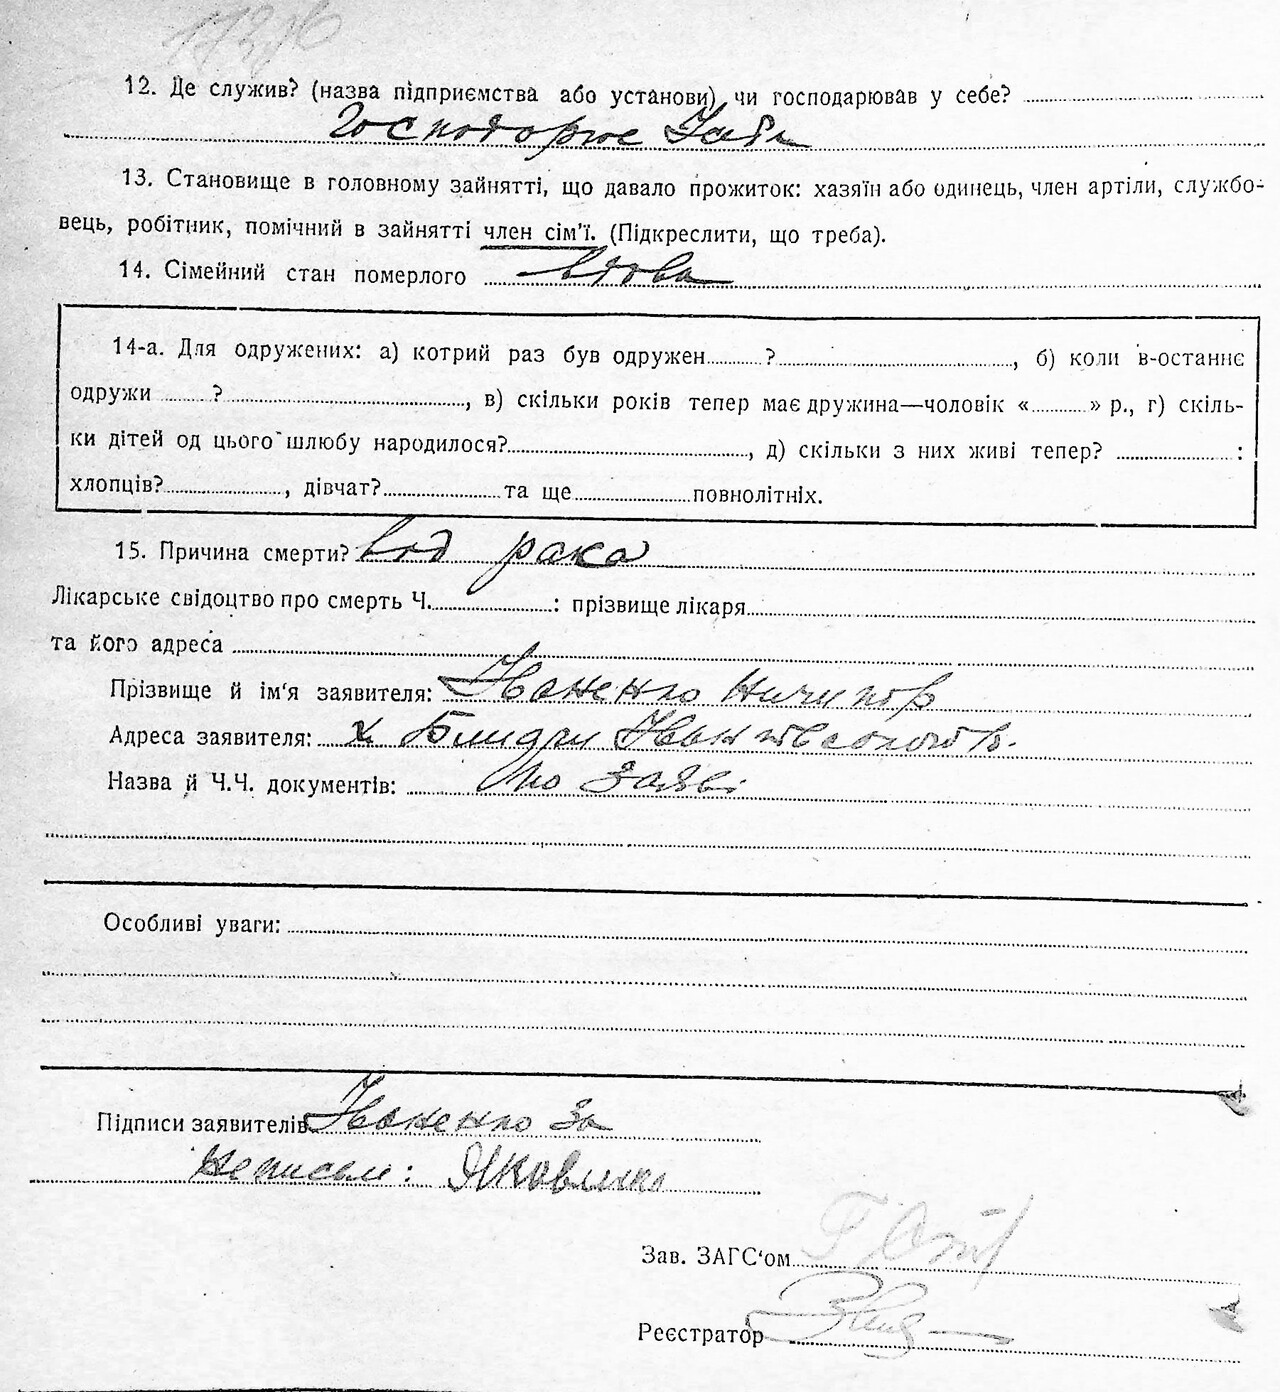 12. Де служив? (назва підприємства або установи) чи господарював у себе?
Господорює
13. Становище в головному зайнятті, що давало прожиток: хазяїн або одинець, член артіли, службо-
вець, робітник, помічний в зайнятті член сім'ї. (Підкреслити, що треба).
14. Сімейний стан померлого вдова
14-а. Для одружених: а) котрий раз був одружен ? , б) коли в-останнє
одружи ? , в) скільки років тепер має дружина—чоловік « » р., г) скіль-
ки дітей од цього шлюбу народилося? , д) скільки з них живі тепер? :
хлопців? , дівчат? та ще повнолітніх.
15. Причина смерти? від рака
Лікарське свідоцтво про смерть Ч. : прізвище лікаря
та його адреса
Прізвище й ім'я заявителя: Іваненко Ничипор
Адреса заявителя: х.
Назва й Ч.Ч. документів: по заяві
Особливі уваги:
Підписи заявителів Іваненко За
Неписьм: Яковенко
Зав. ЗАГС'ом
Реєстратор